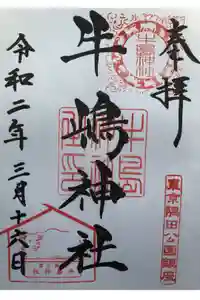 奉拝
牛嶋神社
令和二年三月十六日
東京隅田公園鎮座